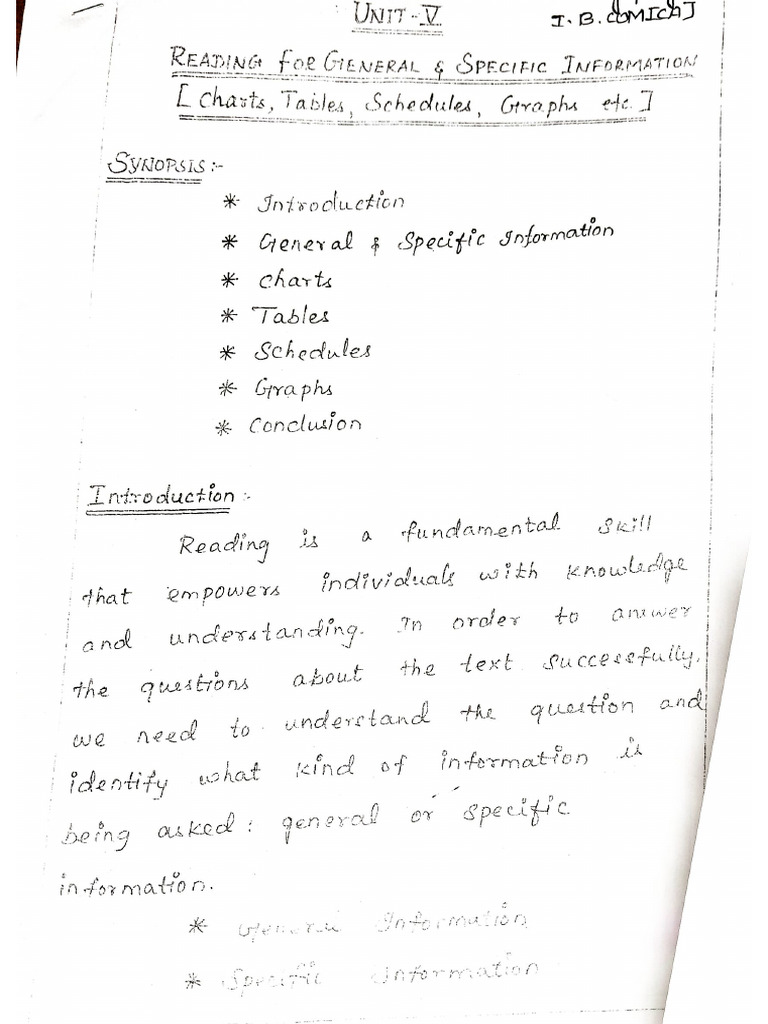 UNIT-V
I. B. COM[CA]
READING FOR GENERAL & SPECIFIC INFORMATION
[Charts, Tables, Schedules, Graphs etc.]
SYNOPSIS:-
* Introduction
* General & Specific Information
* Charts
* Tables
* Schedules
* Graphs
* Conclusion
Introduction:-
Reading is a fundamental skill
that empowers individuals with knowledge
and understanding. In order to answer
the questions about the text successfully,
we need to understand the question and
identify what kind of information is
being asked: general or specific
information.
* General Information
* Specific Information